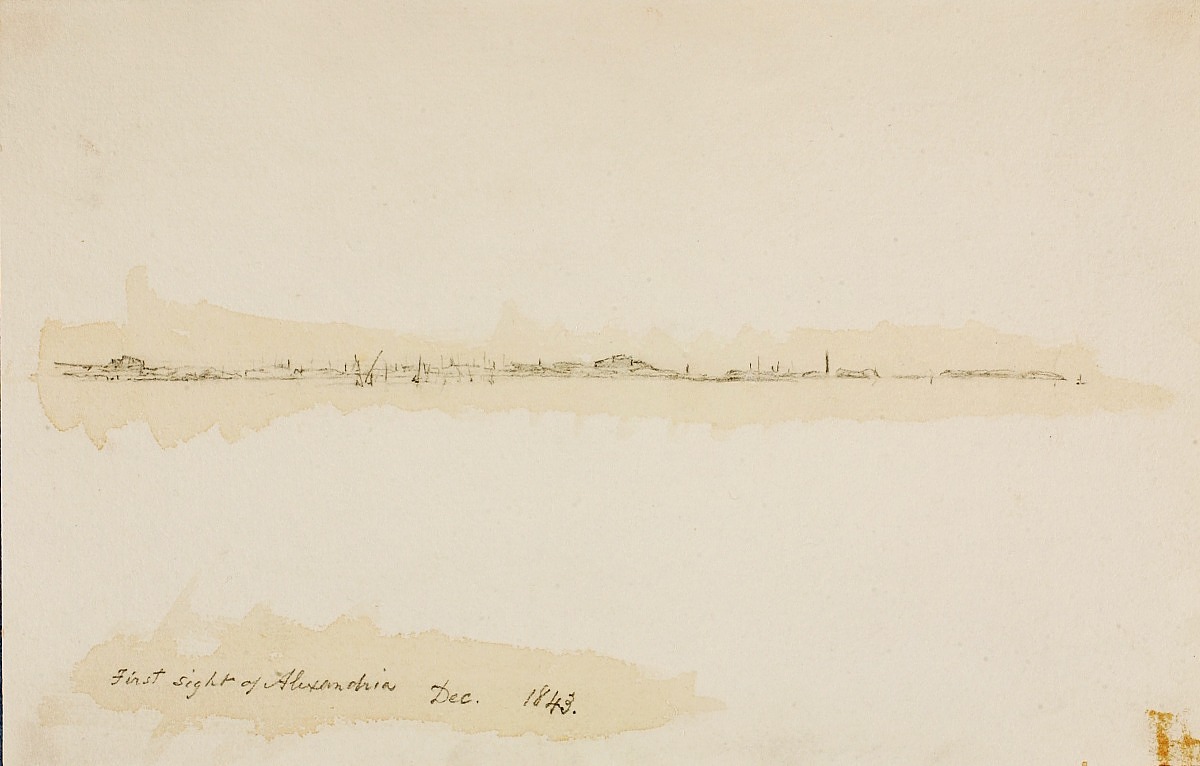 First sight of Alexandria Dec. 1843.